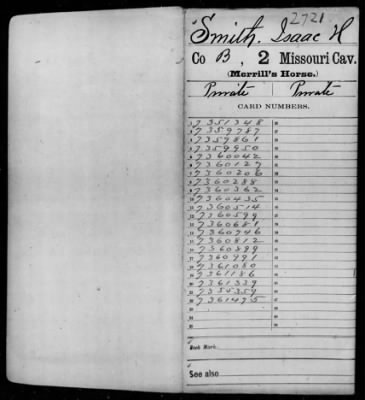 2721
Smith, Isaac H
Co B, 2 Missouri Cav.
(Merrill's Horse.)
Private Private
CARD NUMBERS.
1 7351348
2 7359787
3 7359861
4 7359950
5 7360042
6 7360127
7 7360206
8 7360288
9 7360362
10 7360435
11 7360514
12 7360599
13 7360681
14 7360746
15 7360812
16 7360899
17 7360991
18 7361080
19 7361186
20 7361339
21 7355359
22 7361475
Book Mark:
See also